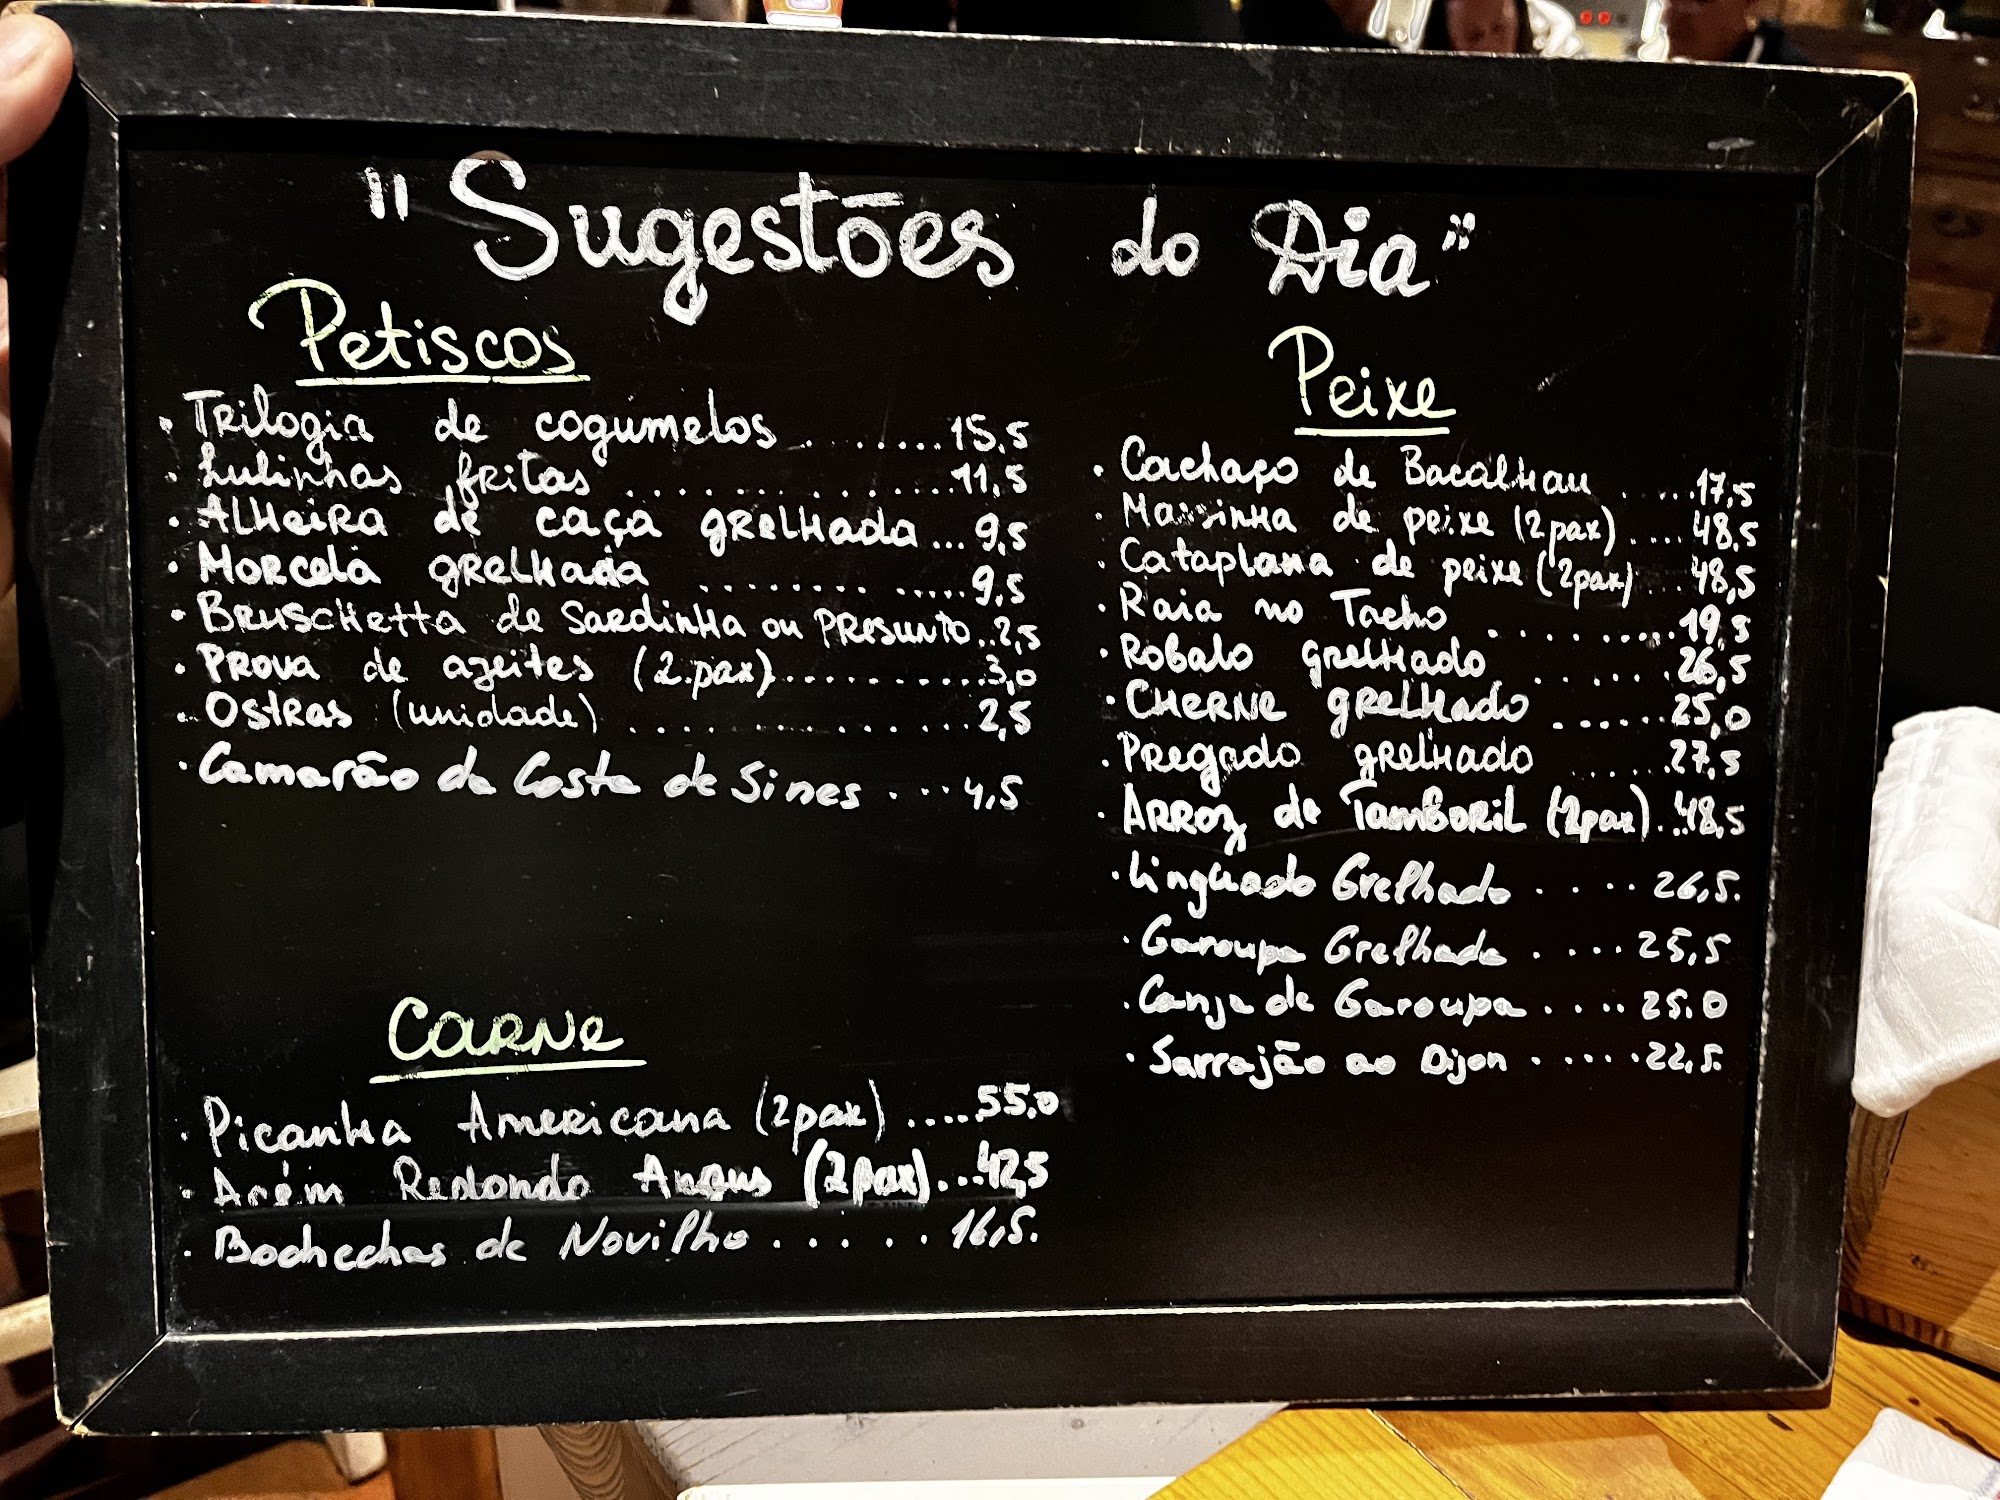 "Sugestões do Dia"
Petiscos
· Trilogia de cogumelos ........ 15,5
· Lulinhas fritas ............... 11,5
· Alheira de caça grelhada ... 9,5
· Morcela grelhada ............. 9,5
· Bruschetta de Sardinha ou Presunto .. 2,5
· Prova de azeites (2 pax) .......... 3,0
· Ostras (unidade) ............... 2,5
· Camarão da Costa de Sines ... 4,5
Carne
· Picanha Americana (2pax) .... 55,0
· Acém Redondo Angus (2pax) ... 42,5
· Bochechas de Novilho ...... 16,5.
Peixe
· Cachaço de Bacalhau ..... 17,5
· Massinha de peixe (2pax) .... 48,5
· Cataplana de peixe (2pax) ... 48,5
· Raia no Tacho ......... 19,5
· Robalo grelhado ....... 26,5
· Cherne grelhado ...... 25,0
· Pregado grelhado ...... 27,5
· Arroz de Tamboril (2pax) ... 48,5
· Linguado Grelhado .... 26,5.
· Garoupa Grelhada .... 25,5
· Canja de Garoupa .... 25.0
· Sarrajão ao Dijon ..... 22,5.